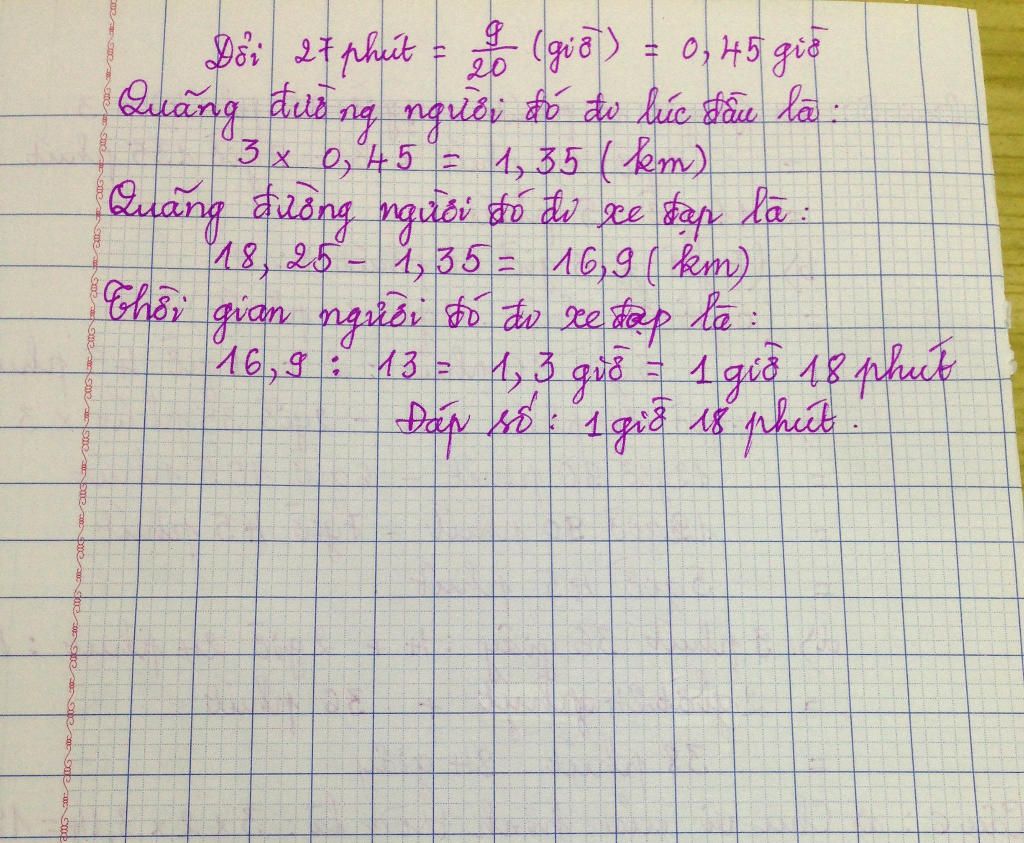 Đổi 27 phút = 9/20 (giờ) = 0,45 giờ
Quãng đường người đó đi lúc đầu là:
3 x 0,45 = 1,35 (km)
Quãng đường người đó đi xe đạp là:
18,25 - 1,35 = 16,9 (km)
Thời gian người đó đi xe đạp là:
16,9 : 13 = 1,3 giờ = 1 giờ 18 phút
Đáp số: 1 giờ 18 phút.